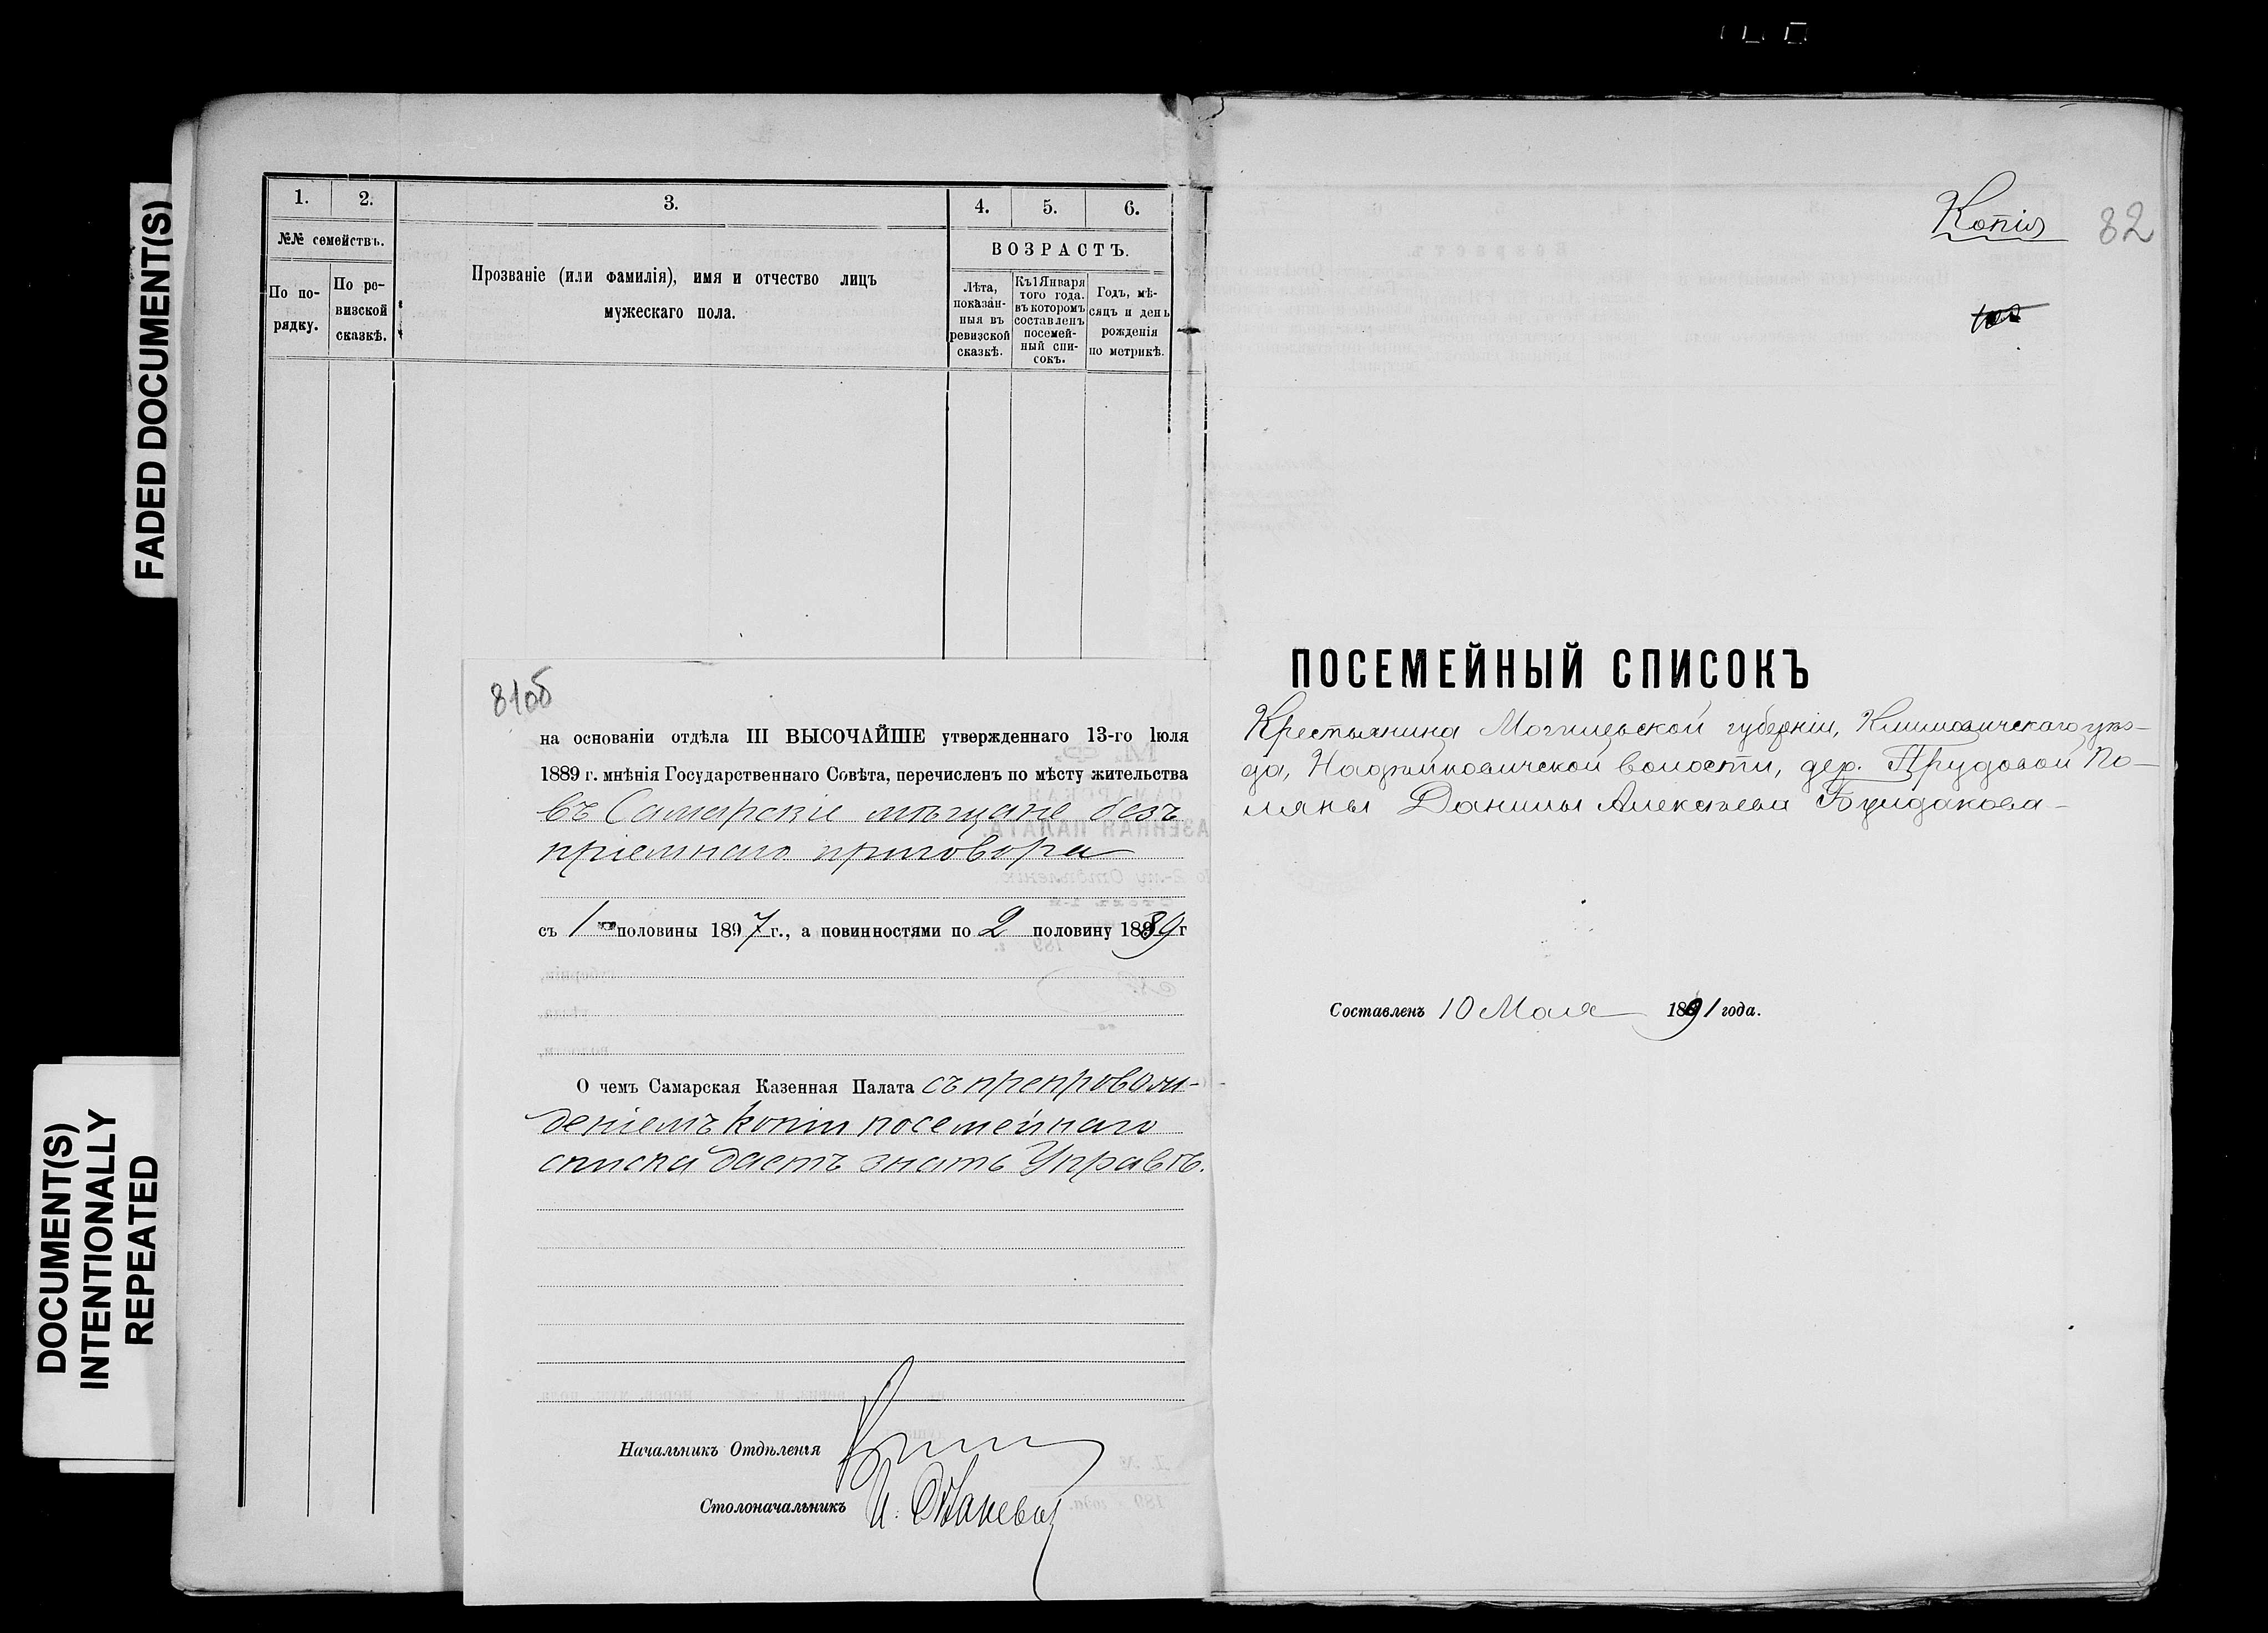 FADED DOCUMENT(S)
DOCUMENT(S)
INTENTIONALLY
REPEATED
1. 2. 3. 4. 5. 6.
№№ семействъ.
По по-
рядку.
По ре-
визской
сказкѣ.
Прозваніе (или фамилія), имя и отчество лицъ
мужескаго пола.
ВОЗРАСТЪ.
Лѣта,
показан-
ныя въ
ревизской
сказкѣ.
Къ 1 Января
того года.
въ которомъ
составленъ
посемей-
ный спи-
сокъ.
Годъ, мѣ-
сяцъ и день
рожденія
по метрикѣ.
81об
на основаніи отдѣла III ВЫСОЧАЙШЕ утвержденнаго 13-го Іюля
1889 г. мнѣнія Государственнаго Совѣта, перечисленъ по мѣсту жительства
въ Самарскіе мѣщане безъ
пріемнаго приговора
съ 1 половины 1897 г., а повинностями по 2 половину 1889 г
О чемъ Самарская Казенная Палата съ препровож-
деніемъ копіи посемейнаго
списка даетъ знать Управѣ.
Начальникъ Отдѣленія
Столоначальникъ
Копія
82
ПОСЕМЕЙНЫЙ СПИСОКЪ
Крестьянина Могилевской губерніи, Климовичскаго уѣз-
да, волости, дер. Прудовой По-
ляны Данилы Алексѣева
Составленъ 10 Мая 1891 года.